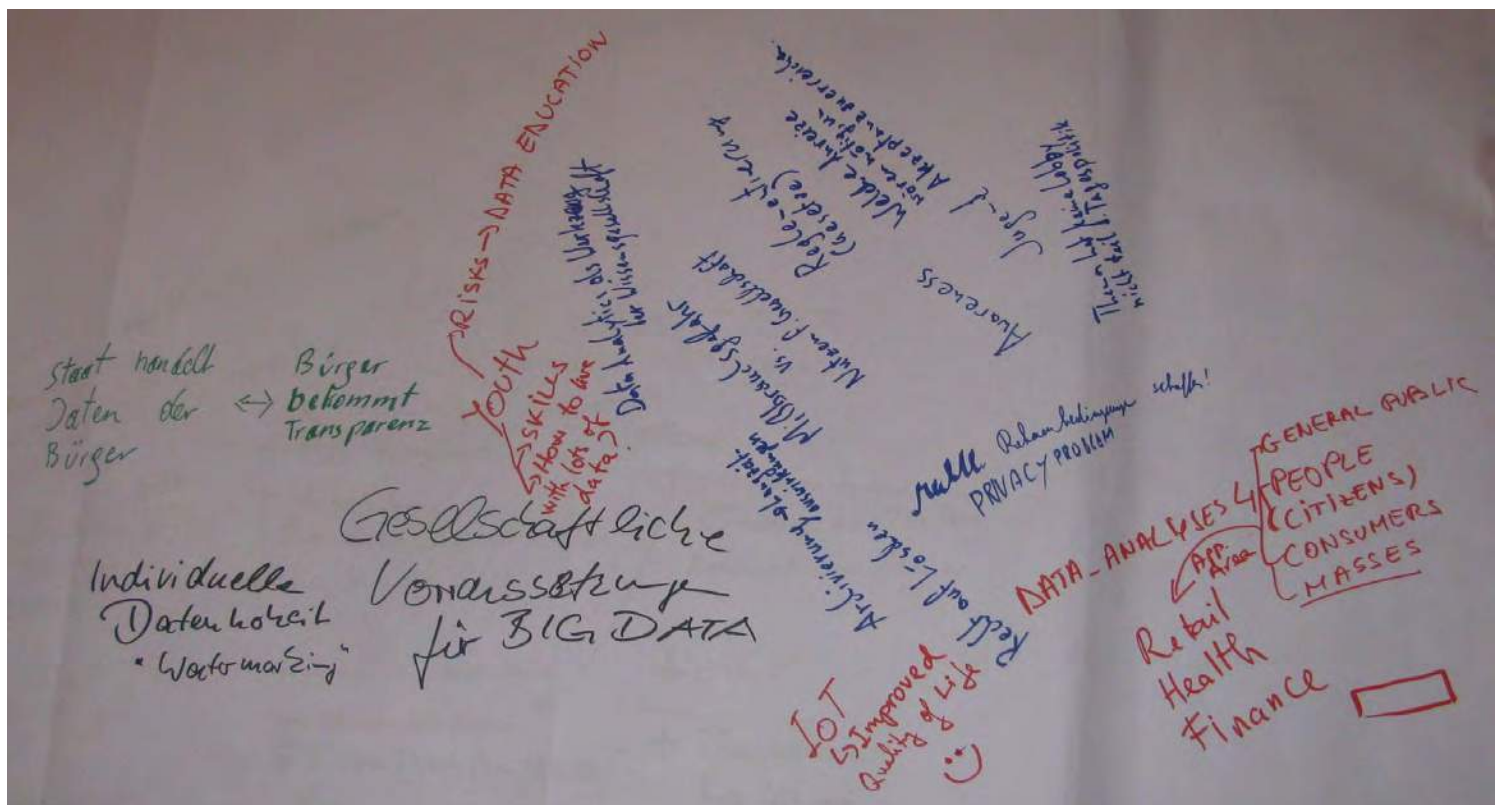 Staat handelt
Daten der
Bürger
<->
Bürger
bekommt
Transparenz
YOUTH
→ RISKS → DATA EDUCATION
→ SKILLS
→ How to live
with lots of
data?
Data Analytics als Werkzeug
für Wissensgesellschaft
Gesellschaftliche
Voraussetzungen
für BIG DATA
Individuelle
Datenhoheit
"Watermarking"
Archivierung → Langzeit-
auswirkungen
Mißbrauchsgefahr
vs.
Nutzen f. Gesellschaft
Regle-entierung
(Gesetze)
Welche Anreize
wären nötig um
Akzeptanz zu erreichen
Awareness
Jugend
Thema hat keine Lobby
nicht Teil d. Tagespolitik
Recht auf Löschen
Rahmenbedingungen schaffen!
PRIVACY PROBLEM
DATA_ANALYSES 4
GENERAL PUBLIC
PEOPLE
(CITIZENS)
CONSUMERS
MASSES
App.
Area
Retail
Health
Finance
IoT
↳ Improved
Quality of Life